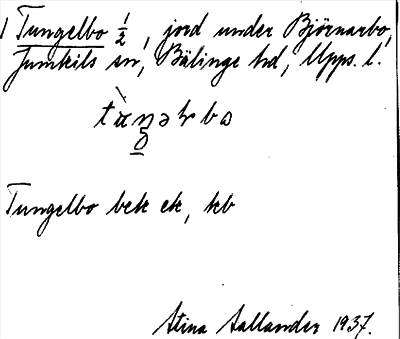 1 Tungelbo 1/2, jord under Björnarbo,
Jumkils sn, Bälinge hd, Upps. l.
Tungelbo bek ek, kb
Stina Aallander 1937.